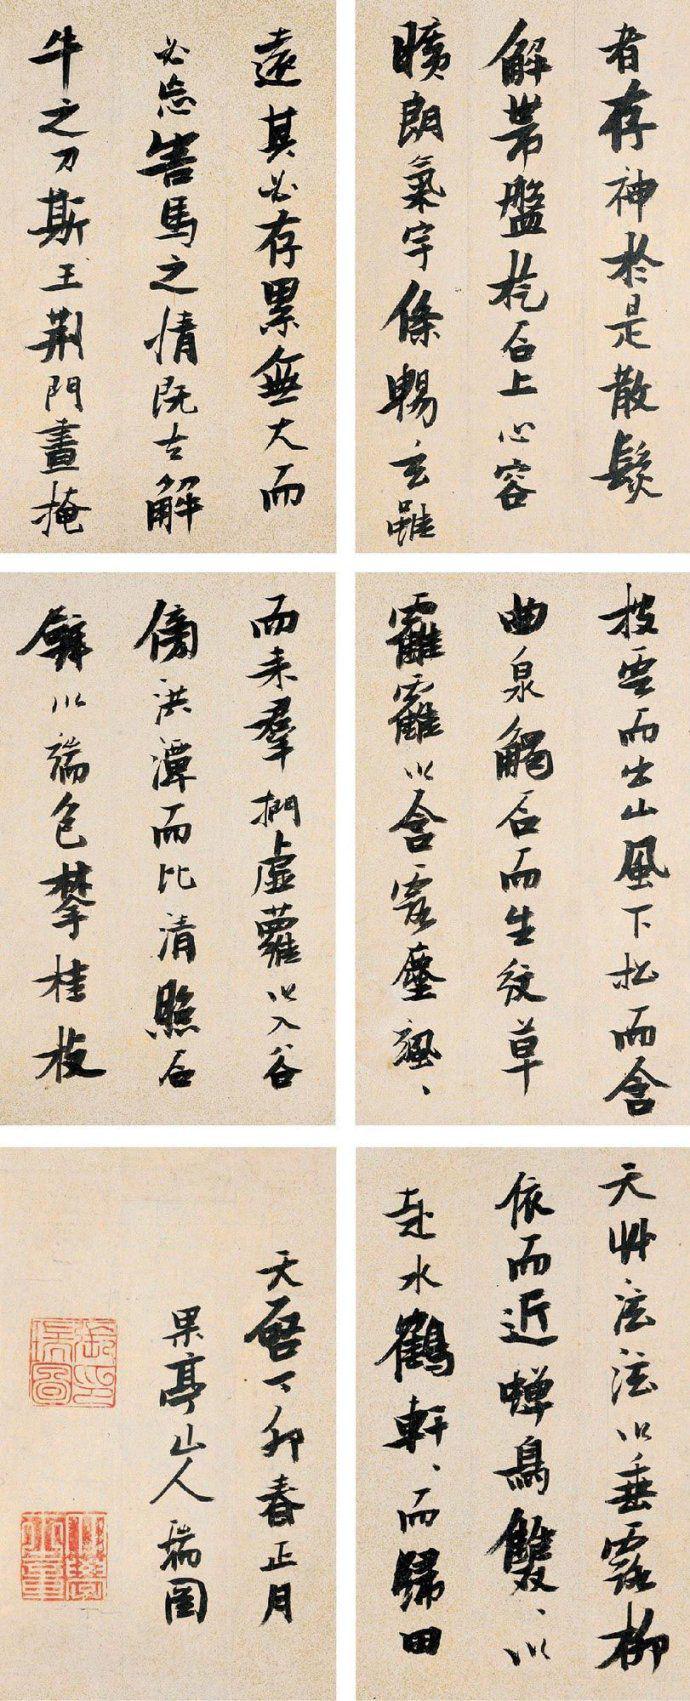 者存神於是散髮
解帶盤桓石上心容
曠朗氣宇條暢玄雖
遠其必存累無大而
必忘害馬之情既去解
牛之刀斯王荆門晝掩
披雲而出山風下松而含
曲泉觸石而生紋草
靃靃以含露颯、
而来羣捫虛蘿以入谷
傍洪潭而比清照石
壁以端色攀桂枝
天艸泫泫以垂露柳
依而近蟬鳥雙、以
赴水鶴軒、而歸田
天啓丁卯春正月
果亭山人瑞圖
張瑞圖印